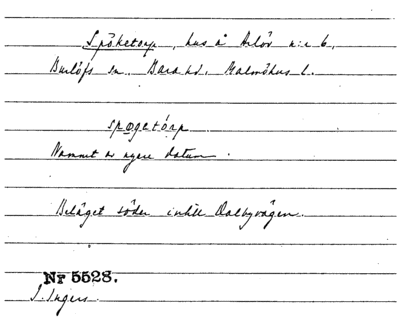 Spöketorp, hus å Arlöv n:r 6,
Burlöfs sn. Bara hd. Malmöhus l.
spøgetårp
Namnet av nyare datum.
Beläget söder intill Dalbyvägen.
Nr 5528.
I. Ingers.